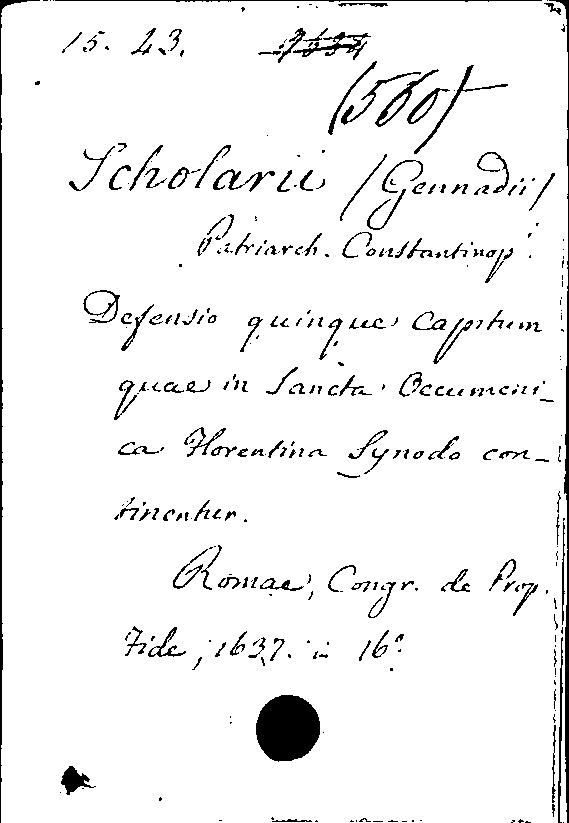 15. 23.
(560)
Scholarii (Gennadii)
Patriarch. Constantinop.
Defensio quinque Capitum
quae in Sancta Oecumeni-
ca Florentina Synodo con-
tinentur.
Romae, Congr. de Prop.
Fide, 1637. in 16º